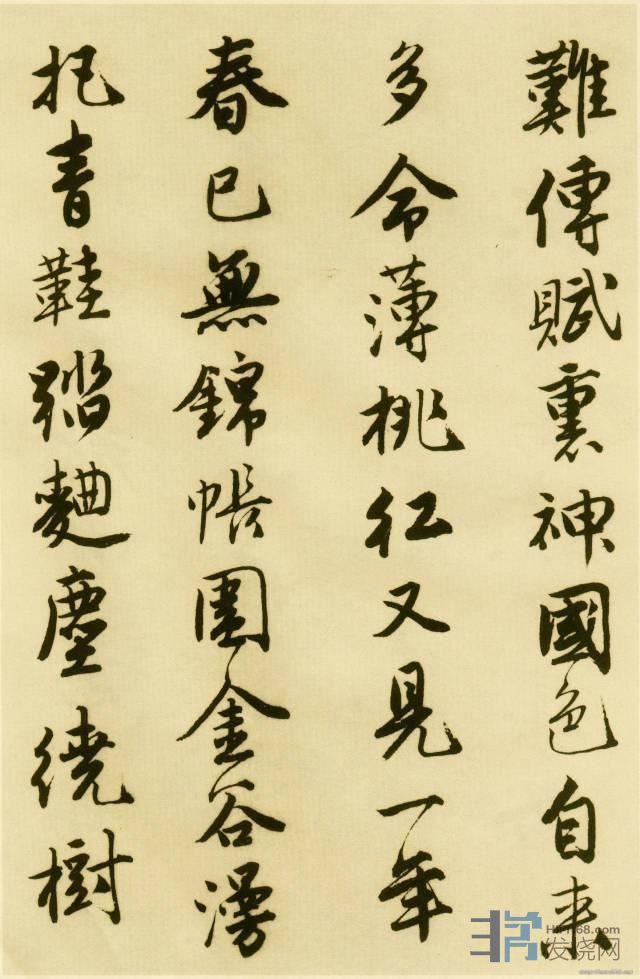 難傳賦裏神國色自来
多命薄桃紅又見一年
春已無錦帳圍金谷漫
把青鞋踏麴塵繞樹
发烧网